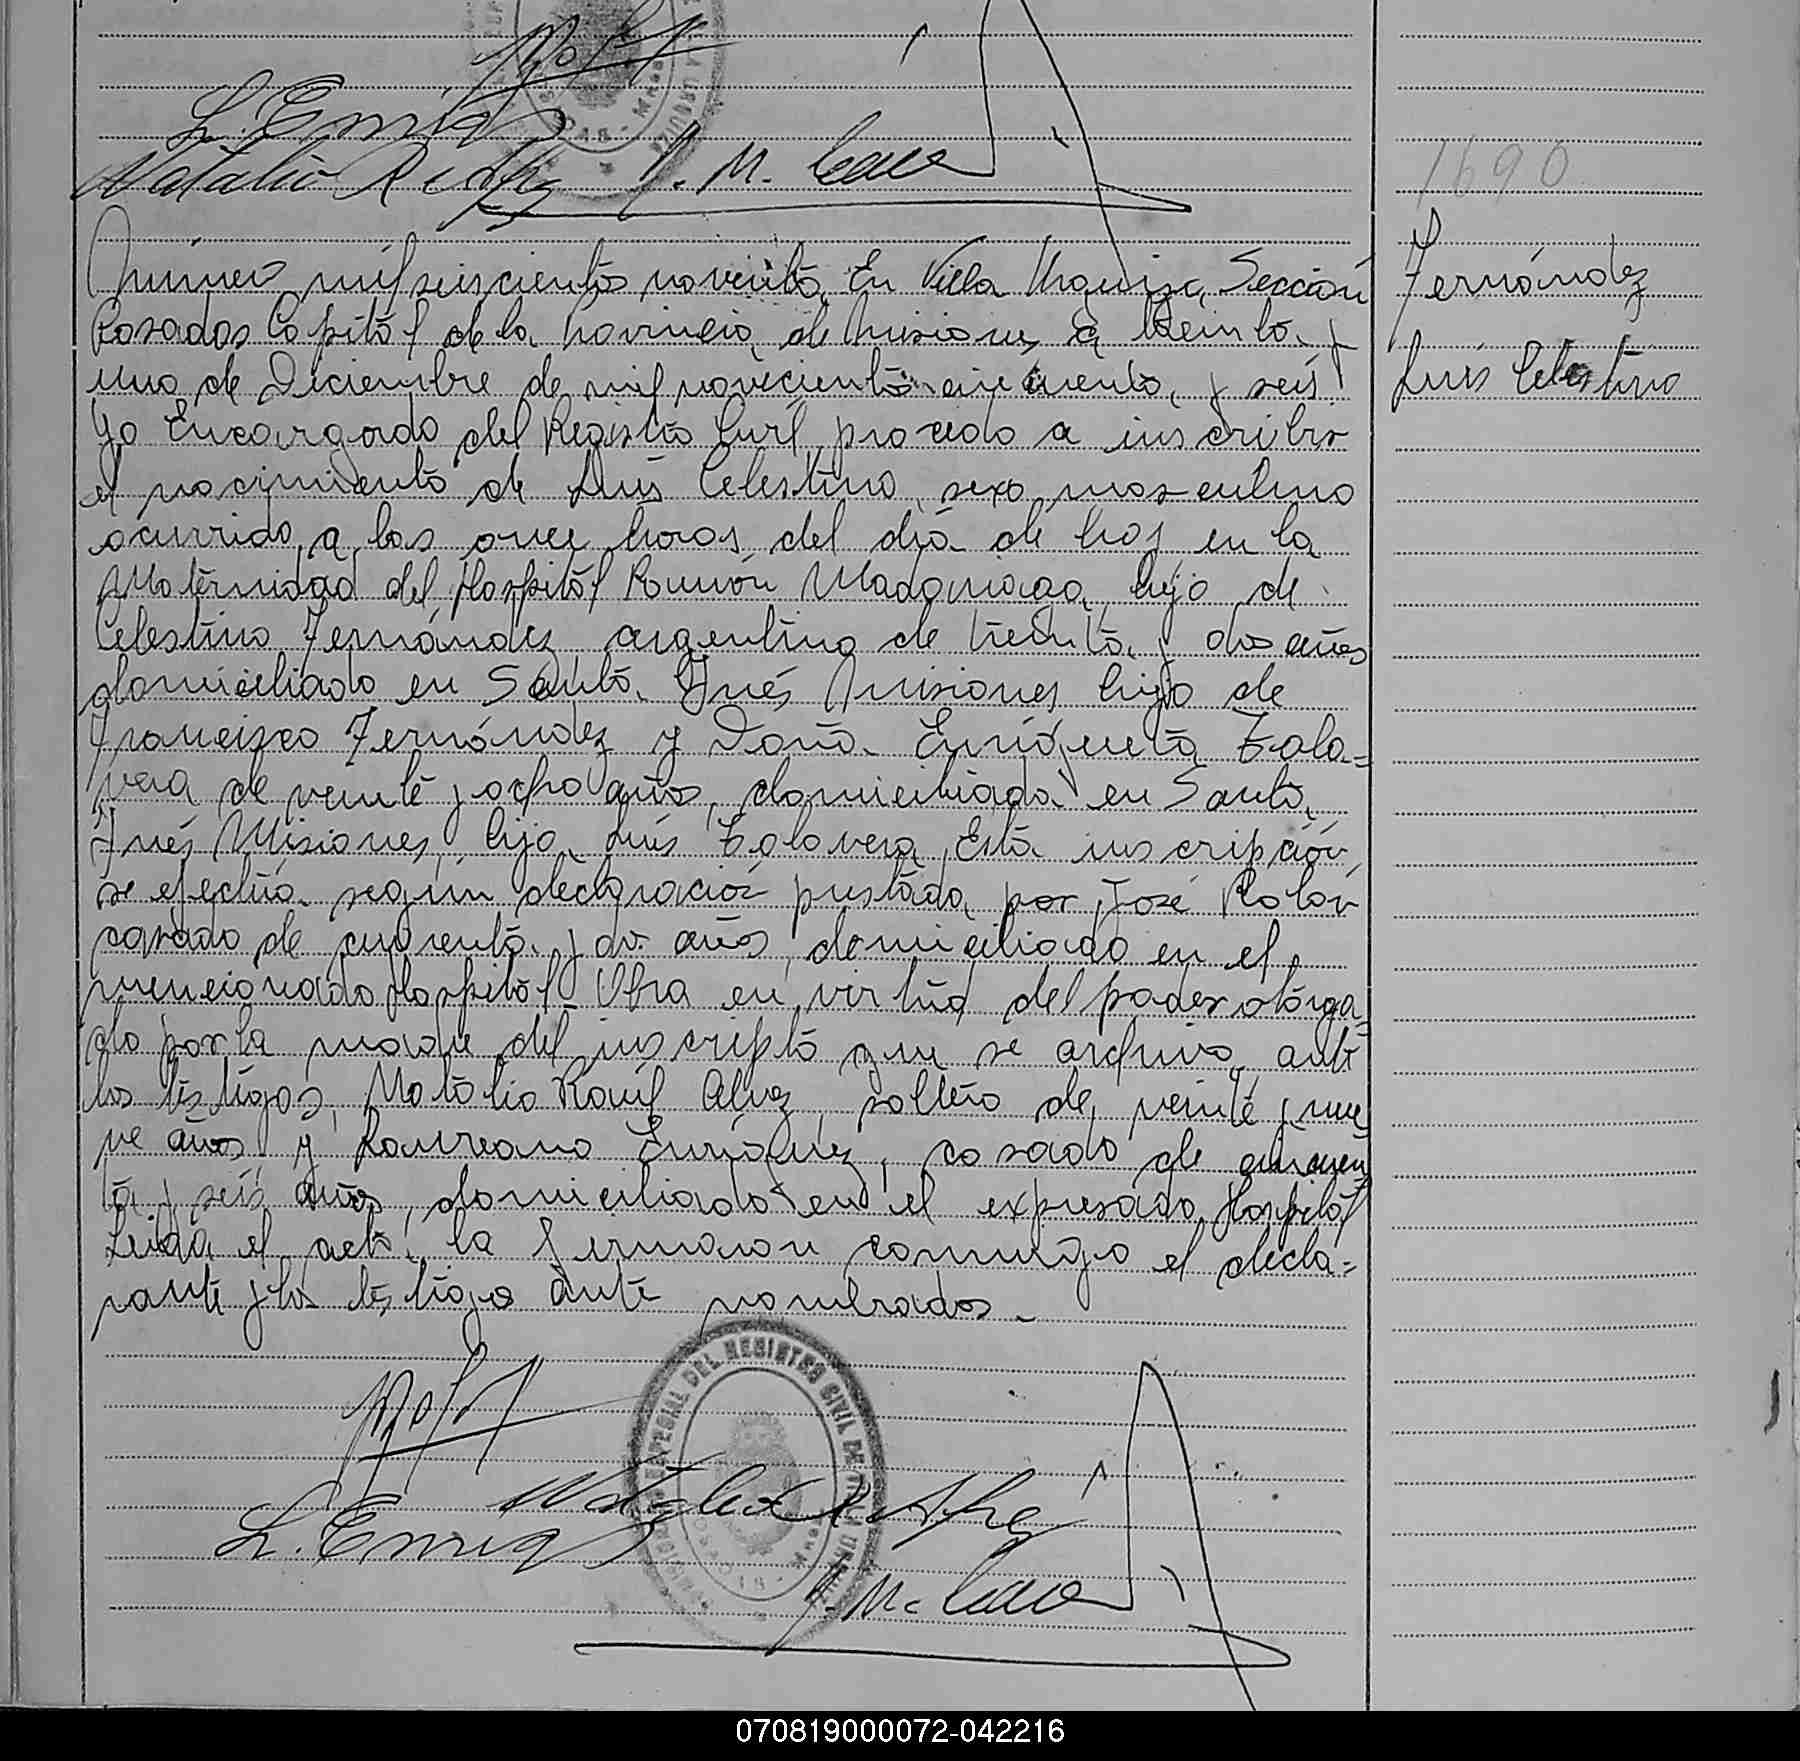 L. Enriq
Natalio R Alvez J. M. Cace
1690
Número mil seiscientos noventa. En Villa Urquiza, Sección
Posadas Capital de la Provincia de Misiones a treinta y
uno de Diciembre de mil novecientos cincuenta y seis
Yo Encargado del Registro Civil procedo a inscribir
el nacimiento de Luis Celestino, sexo masculino
ocurrido a las once horas del día de hoy en la
Maternidad del Hospital Ramón Madariaga hijo de
Celestino Fernández argentino de treinta y dos años
domiciliado en Santa Inés Misiones hijo de
Francisco Fernández y Doña Enriqueta Tala=
vera de veinte y ocho años, domiciliada en Santa
Inés Misiones, hija Luis Talavera Esta inscripción
se efectúa según declaración prestada por José Rolón
casado de cuarenta y dos años, domiciliado en el
mencionado Hospital Obra en virtud del poder otorga=
do por la madre del inscripto que se archiva, ante
los testigos, Natalio Raúl Alvez, soltero de veinte y nue
ve años y Laureano Enríquez, casado de cincuen
ta y seis años, domiciliados en el expresado Hospital
Leída el acta, la firmaron conmigo el decla=
rante y los testigos ante nombrados.
Fernández
Luis Celestino
SECCIONAL DEL REGISTRO CIVIL DE VILLA URQUIZA
Natalio R Alvez
L. Enriq
J. M. Cace
070819000072-042216